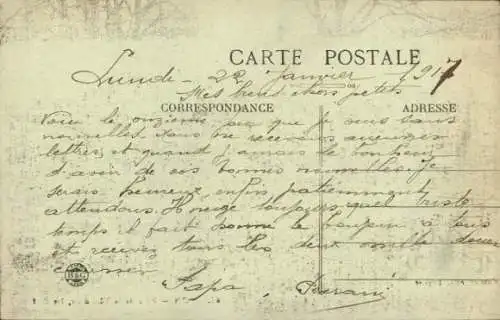 CARTE POSTALE
Lundi - 22 Janvier 1917
Mes biens chers petits
CORRESPONDANCE
ADRESSE
Voici le onzième jour que je suis sans
nouvelles dans ne recevoir aucunes
lettres et quand j'aurais le bonheur
d'avoir de vos bonnes nouvelles. Je
serais heureux, enfin patiemment
attendons. Il neige toujours quel triste
temps il fait donne le bonjour à tous
et recevez tous les deux mille doux
Papa